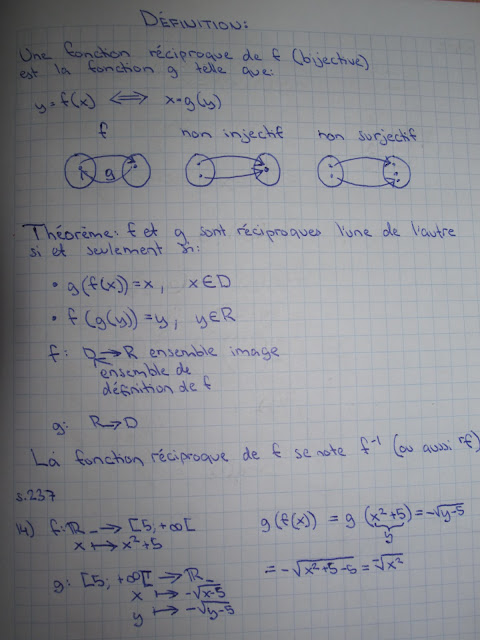 DÉFINITION:
Une fonction réciproque de f (bijective)
est la fonction g telle que:
y=f(x) ⟺ x=g(y)
f non injectif non surjectif
g
Théorème: f et g sont réciproques l'une de l'autre
si et seulement si:
• g(f(x))=x, x∈D
• f(g(y))=y, y∈R
f: D→R ensemble image
ensemble de
définition de f
g: R→D
La fonction réciproque de f se note f⁻¹ (ou aussi ʳf)
s.237
14) f: ℝ_ → [5; +∞[ g(f(x)) = g(x²+5) = -√y-5
x ↦ x²+5 y
g: [5; +∞[ → ℝ_ = -√x²+5-5 = -√x²
x ↦ -√x-5
y ↦ -√y-5